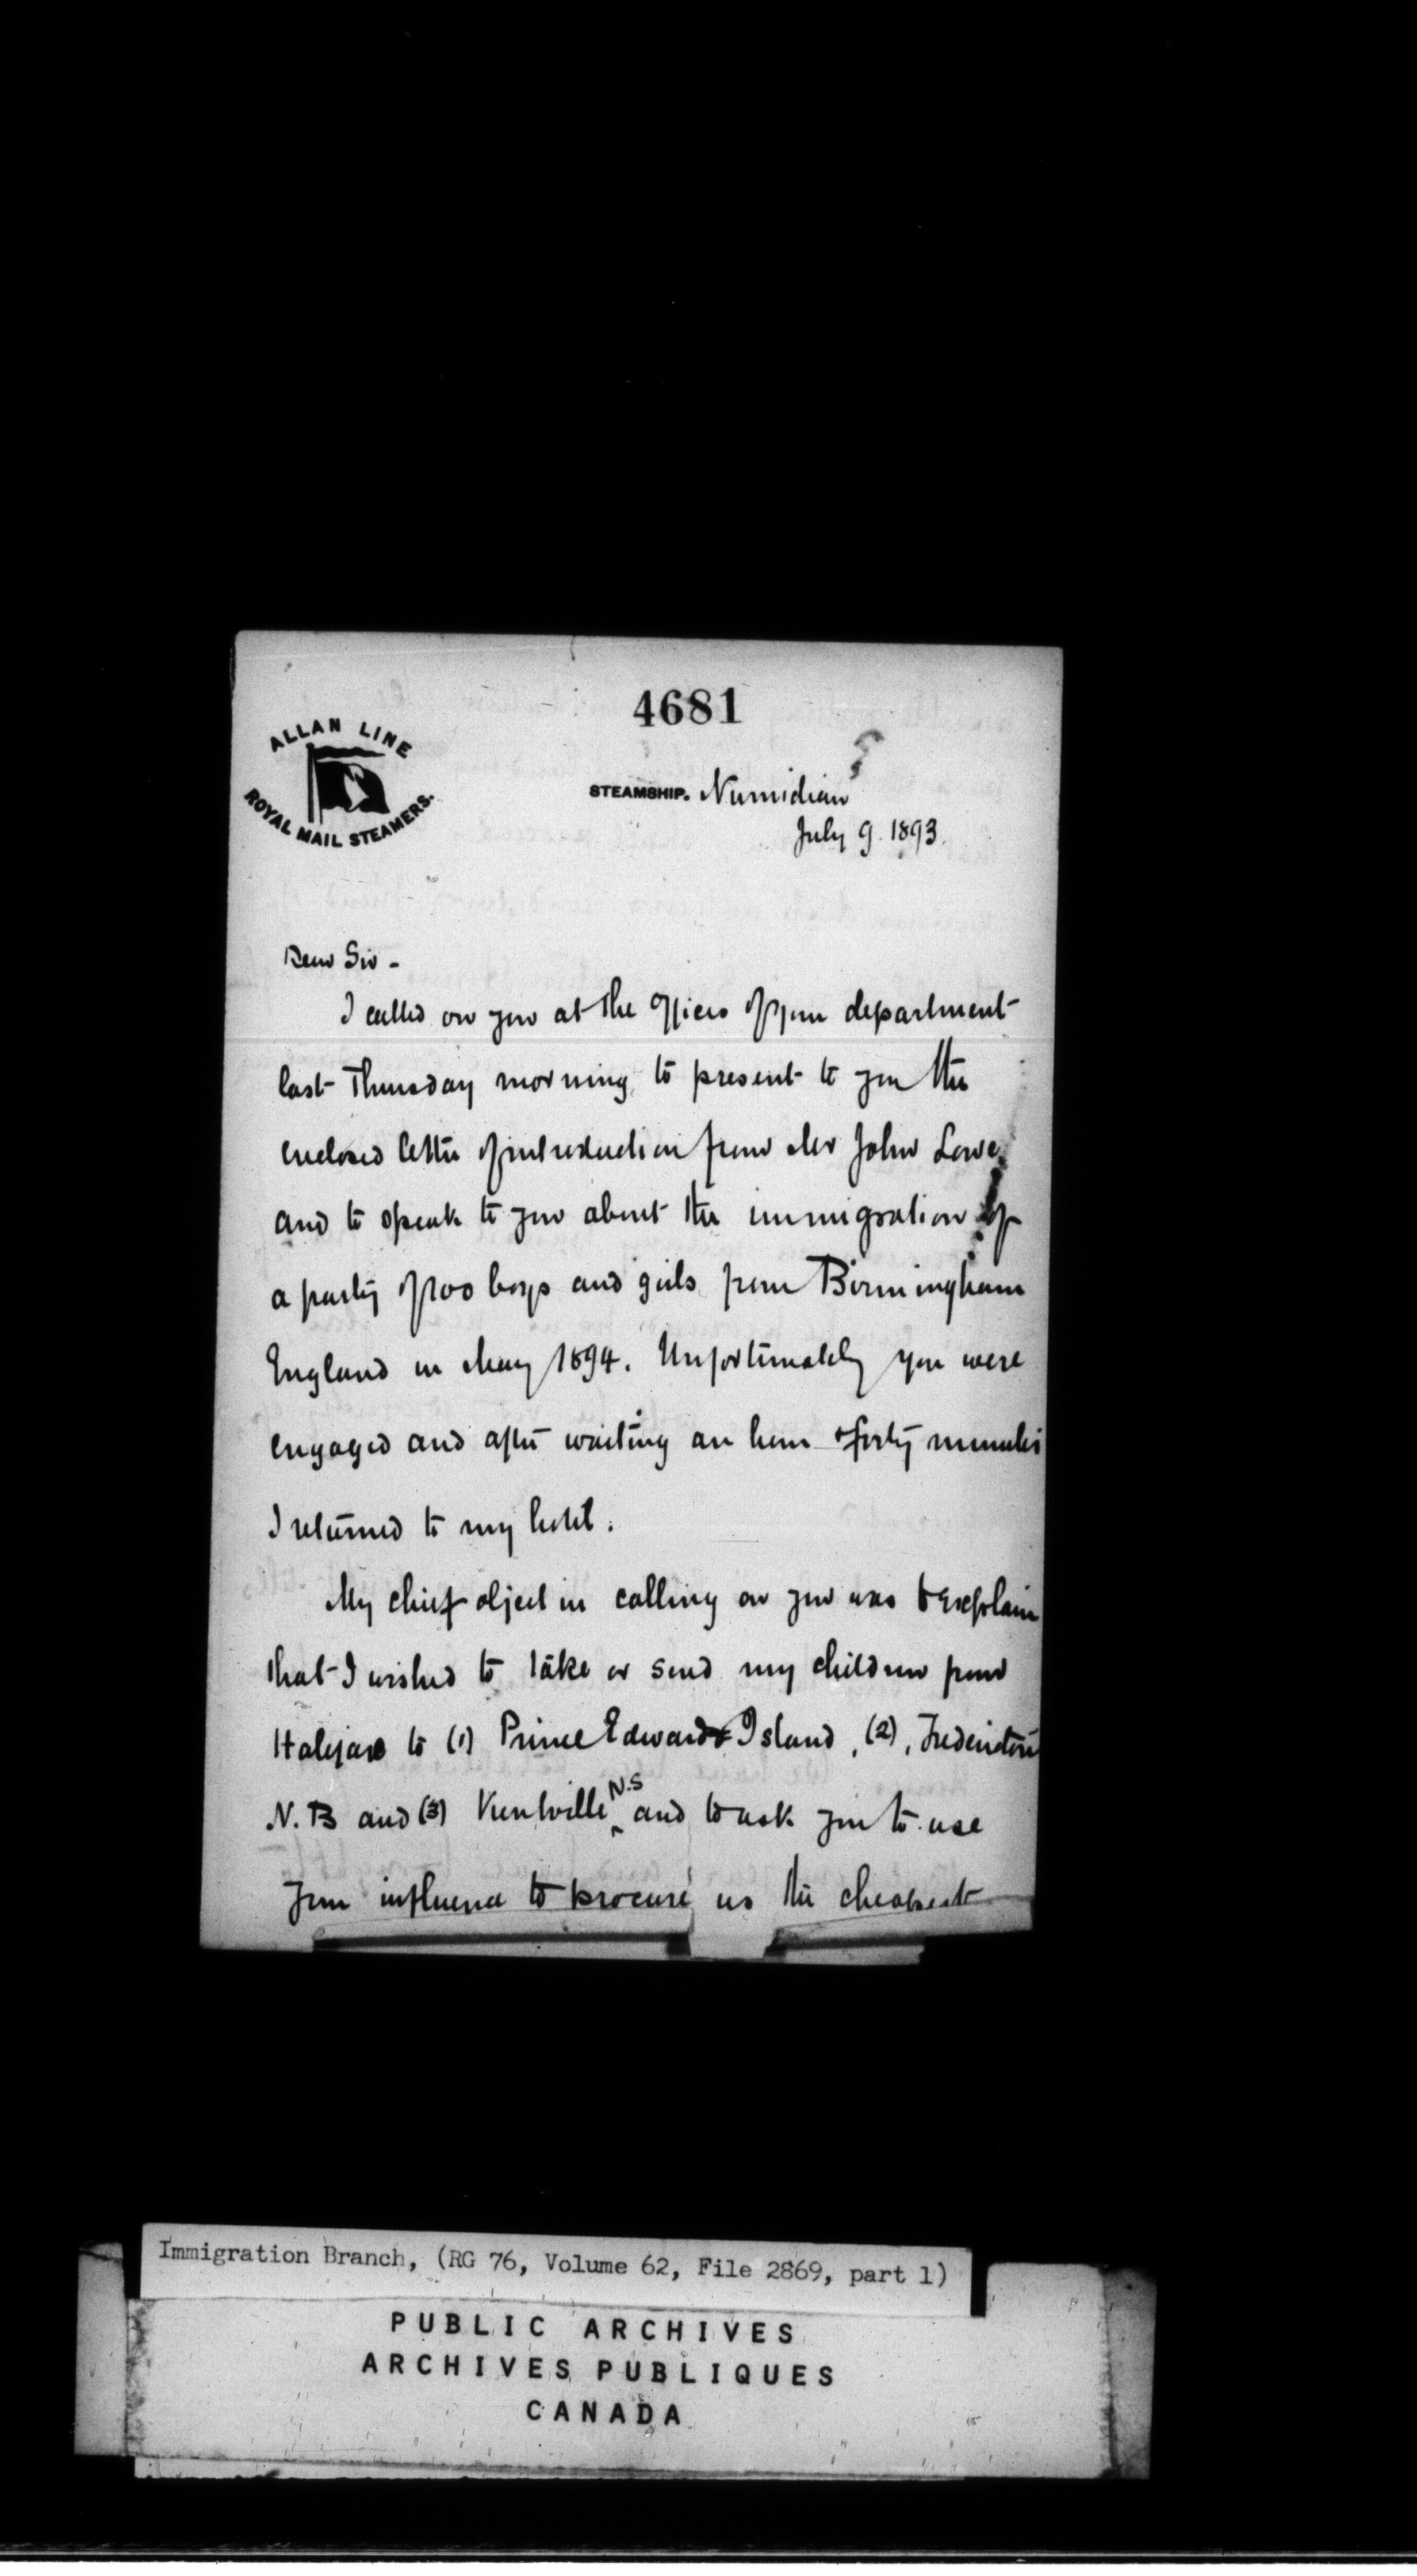 4681
ALLAN LINE
ROYAL MAIL STEAMERS.
STEAMSHIP. Numidian
July 9. 1893.
Dear Sir -
I called on you at the offices of your department
last Thursday morning to present to you the
enclosed letter of introduction from Mr John Lowe
and to speak to you about the immigration of
a party of 100 boys and girls from Birmingham
England in May 1894. Unfortunately you were
engaged and after waiting an hour & forty minutes
I returned to my hotel.
My chief object in calling on you was to explain
that I wished to take or send my children from
Halifax to (1) Prince Edward Island, (2), Fredericton
N. B and (3) Kentville N.S and to ask you to use
your influence to procure us the cheapest
Immigration Branch, (RG 76, Volume 62, File 2869, part 1)
PUBLIC ARCHIVES
ARCHIVES PUBLIQUES
CANADA